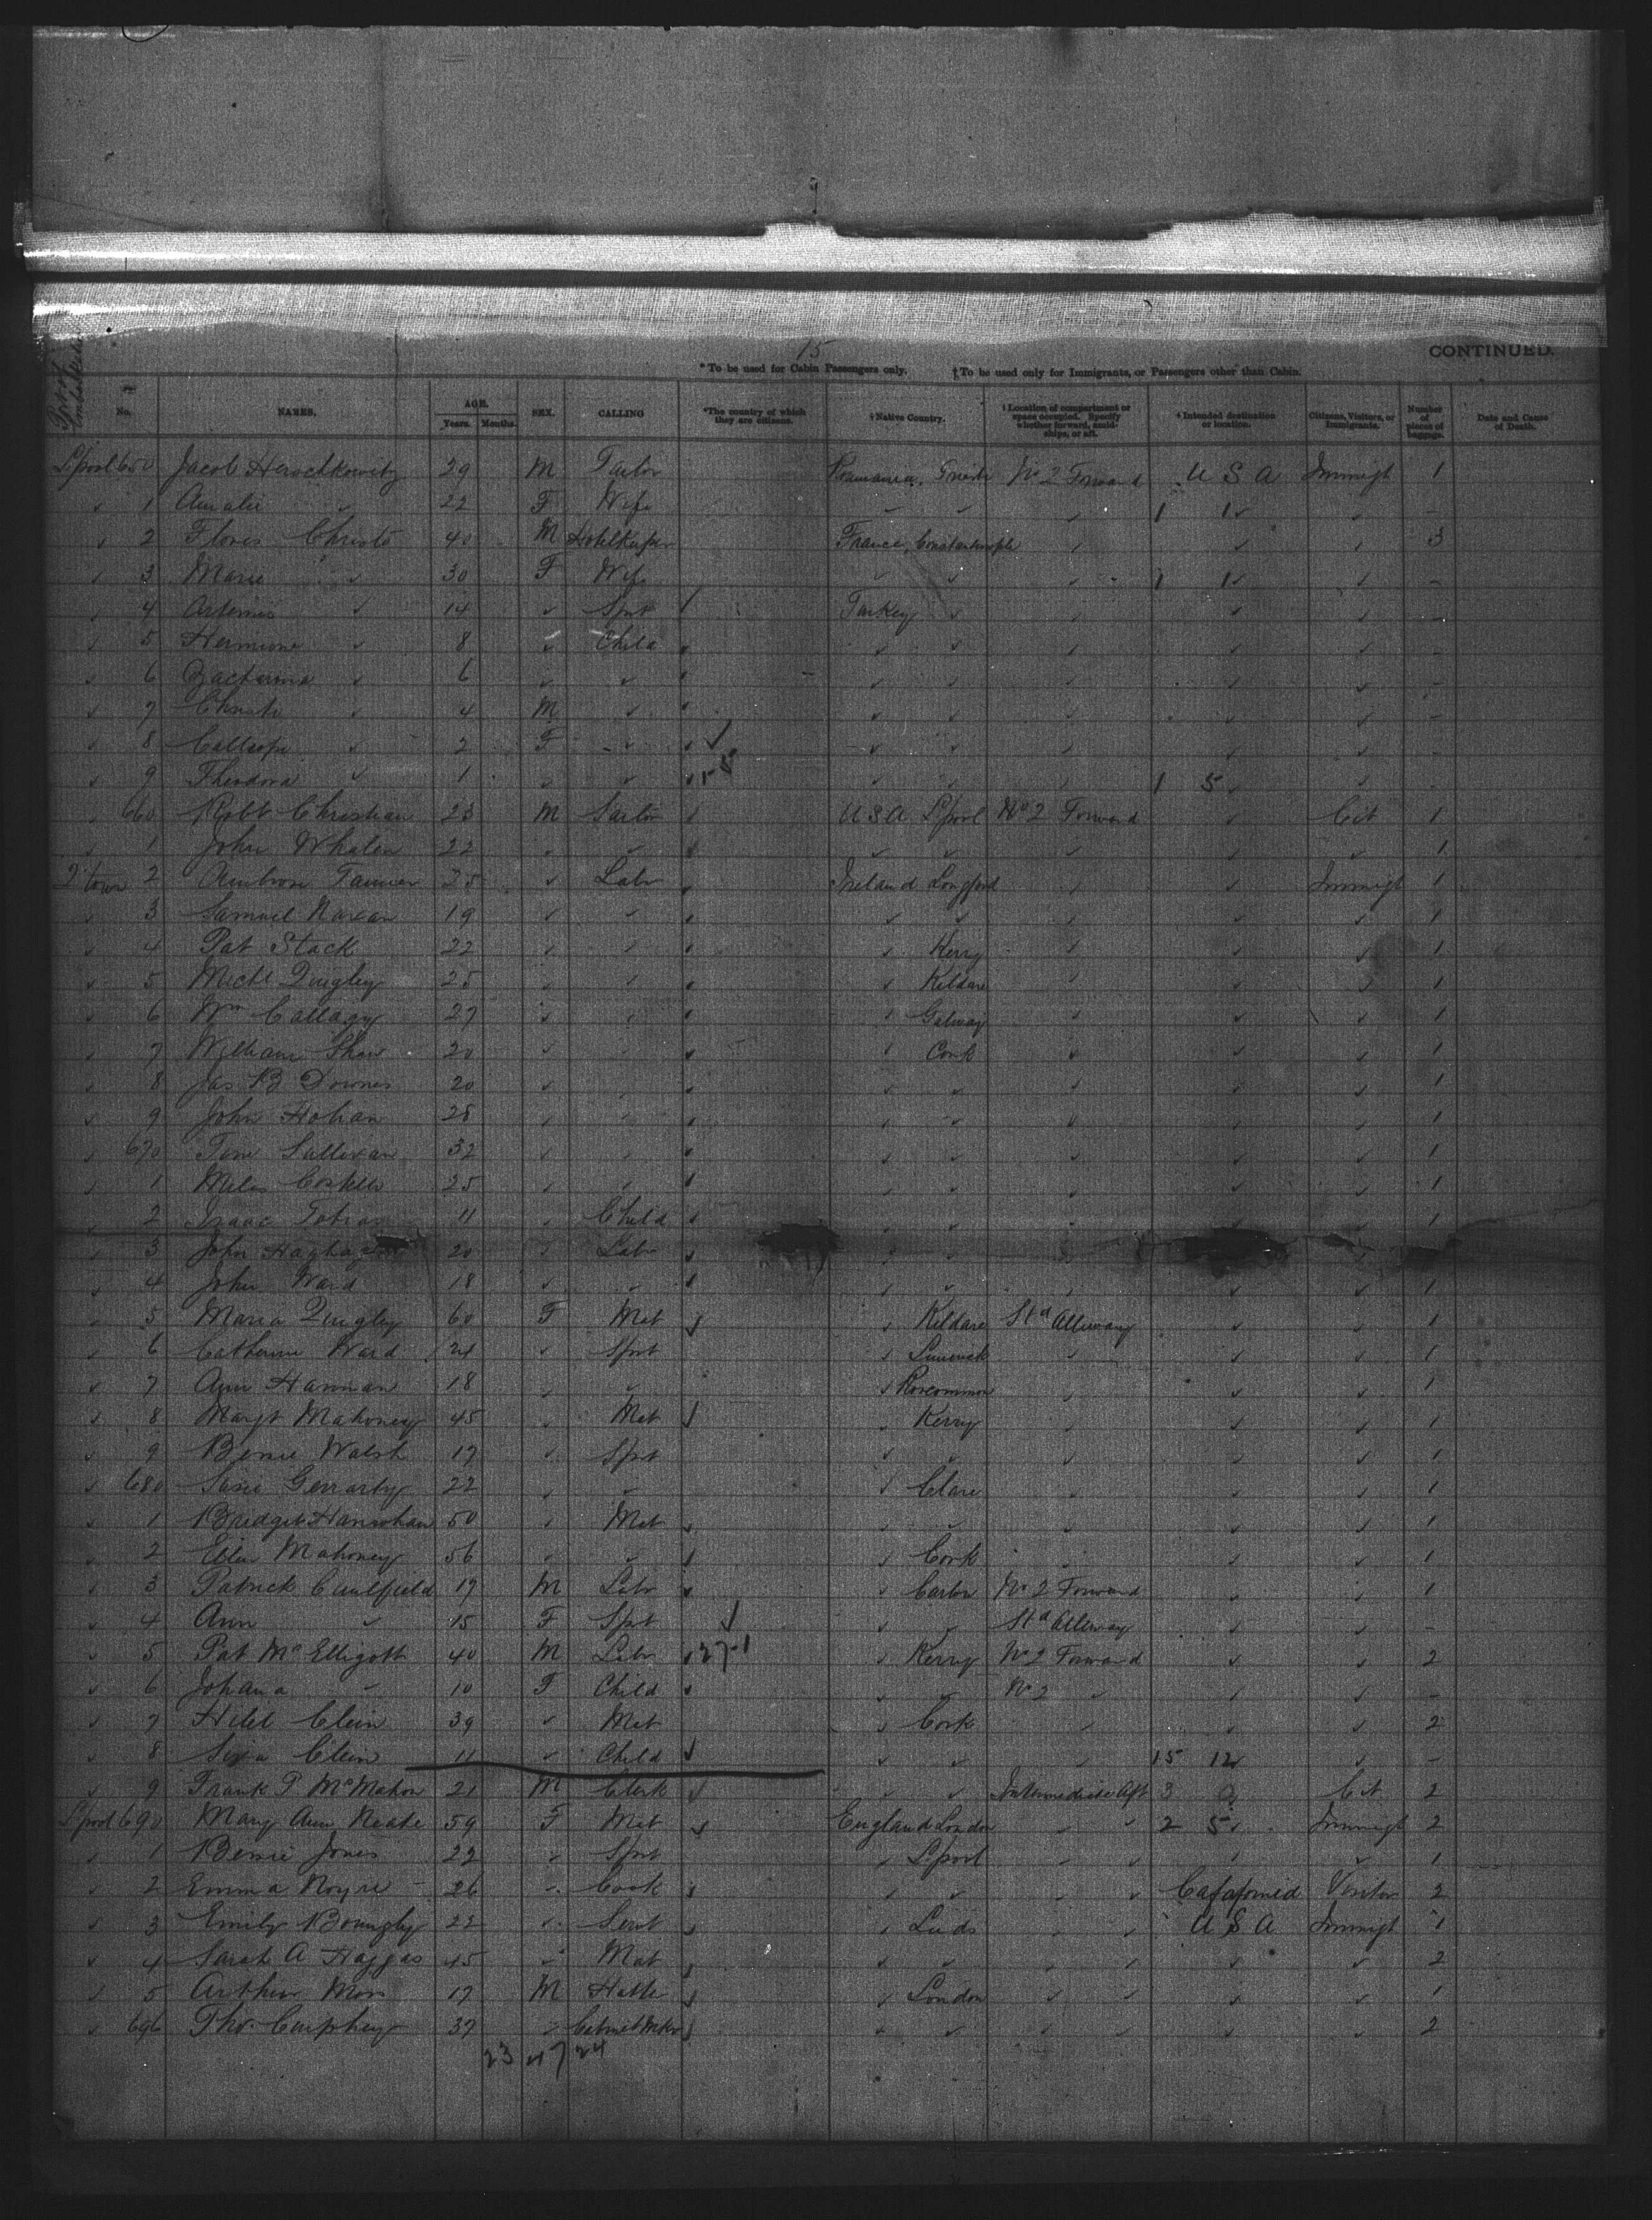 15
CONTINUED.
* To be used for Cabin Passengers only. † To be used only for Immigrants, or Passengers other than Cabin.
Port of Embarkation No. NAMES. AGE. Years. Months. SEX. CALLING *The country of which they are citizens. † Native Country. † Location of compartment or space occupied. Specify whether forward, amidships, or aft. † Intended destination or location. Citizens, Visitors, or Immigrants. Number of pieces of baggage. Date and Cause of Death.
L'pool 650 Jacob Herschkowitz 29 M Tailor Roumania, No 2 Forward U S A Immigt 1
✓ 1 Amalie ✓ 22 F Wife ✓ ✓ ✓ 1 1 ✓ ✓ -
✓ 2 Flores Christo 40 M Hotelkeeper France, Constantinople ✓ ✓ ✓ 3
✓ 3 Marie ✓ 30 F Wife ✓ ✓ ✓ 1 1 ✓ ✓ -
✓ 4 Artemis ✓ 14 ✓ Spst Turkey ✓ ✓ ✓ ✓ -
✓ 5 Hermione ✓ 8 ✓ Child ✓ ✓ ✓ ✓ ✓ -
✓ 6 ✓ 6 ✓ ✓ ✓ ✓ ✓ ✓ ✓ -
✓ 7 Christo ✓ 4 M ✓ ✓ ✓ ✓ ✓ ✓ -
✓ 8 Calliope ✓ 2 F ✓ ✓ ✓ ✓ ✓ ✓ -
✓ 9 Theodora ✓ 1 ✓ ✓ ✓ ✓ ✓ 1 5 ✓ ✓
✓ 660 Robt Christian 23 M Sailor U S A L'pool No 2 Forward ✓ Cit 1
✓ 1 John Whalen 22 ✓ ✓ ✓ ✓ ✓ ✓ ✓ 1
Q'town 2 Ambrose Tanner 25 ✓ Labr Ireland Longford ✓ ✓ Immigt 1
✓ 3 Samuel 19 ✓ ✓ ✓ ✓ ✓ ✓ ✓ 1
✓ 4 Pat Stack 22 ✓ ✓ ✓ Kerry ✓ ✓ ✓ 1
✓ 5 Michl Quigley 25 ✓ ✓ ✓ Kildare ✓ ✓ ✓ 1
✓ 6 Wm Callagy 27 ✓ ✓ ✓ Galway ✓ ✓ ✓ 1
✓ 7 William Shaw 20 ✓ ✓ ✓ Cork ✓ ✓ ✓ 1
✓ 8 Jas B Downes 20 ✓ ✓ ✓ ✓ ✓ ✓ ✓ 1
✓ 9 John Hohan 28 ✓ ✓ ✓ ✓ ✓ ✓ ✓ 1
✓ 670 Tim Sullivan 32 ✓ ✓ ✓ ✓ ✓ ✓ ✓ 1
✓ 1 Miles Costello 25 ✓ ✓ ✓ ✓ ✓ ✓ ✓ 1
✓ 2 Isaac Tobias 11 ✓ Child ✓ ✓ ✓ ✓ ✓ 1
✓ 3 John 20 ✓ Labr ✓ ✓
✓ 4 John Ward 18 ✓ ✓ ✓ ✓ ✓ ✓ ✓ 1
✓ 5 Maria Quigley 60 F Mat ✓ Kildare Std Alleway ✓ ✓ 1
✓ 6 Catherine Ward 24 ✓ Spst ✓ Limerick ✓ ✓ ✓ 1
✓ 7 Ann Hannan 18 ✓ ✓ ✓ Roscommon ✓ ✓ ✓ 1
✓ 8 Margt Mahoney 45 ✓ Mat ✓ Kerry ✓ ✓ ✓ 1
✓ 9 Bessie Walsh 17 ✓ Spst ✓ ✓ ✓ ✓ ✓ 1
✓ 680 Susie 22 ✓ ✓ ✓ Clare ✓ ✓ ✓ 1
✓ 1 Bridget Hanrohan 50 ✓ Mat ✓ ✓ ✓ ✓ ✓ 1
✓ 2 Ellen Mahoney 56 ✓ ✓ ✓ Cork ✓ ✓ ✓ 1
✓ 3 Patrick Caulfield 17 M Labr ✓ Carlow No 2 Forward ✓ ✓ 1
✓ 4 Ann ✓ 15 F Spst ✓ ✓ Std Alleway ✓ ✓ -
✓ 5 Pat McElligott 40 M Labr 27-1 ✓ Kerry No 2 Forward ✓ ✓ 2
✓ 6 Johana ✓ 10 F Child ✓ ✓ No 2 ✓ ✓ ✓ -
✓ 7 Clein 39 ✓ Mat ✓ Cork ✓ ✓ ✓ 2
✓ 8 Clein 11 ✓ Child ✓ ✓ ✓ 15 12 ✓ ✓ -
✓ 9 Frank P McMahon 21 M Clerk ✓ ✓ Intermediate Aft 3 Cit 2
L'pool 690 Mary Ann Neate 59 F Mat England London ✓ ✓ 2 5 ✓ Immigt 2
✓ 1 Bessie Jones 22 ✓ Spst ✓ L'pool ✓ ✓ ✓ ✓ 1
✓ 2 Emma 26 ✓ Cook ✓ ✓ ✓ ✓ Visitor 2
✓ 3 Emily 22 ✓ Servt ✓ Leeds ✓ ✓ U S A Immigt 1
✓ 4 Sarah A Haggas 45 ✓ Mat ✓ ✓ ✓ ✓ ✓ ✓ 2
✓ 5 Arthur Moss 17 M Hatter ✓ London ✓ ✓ ✓ ✓ 1
✓ 696 Thos Cumphey 37 ✓ Cabinet Mkr ✓ ✓ ✓ ✓ ✓ ✓ 2
23 47 24